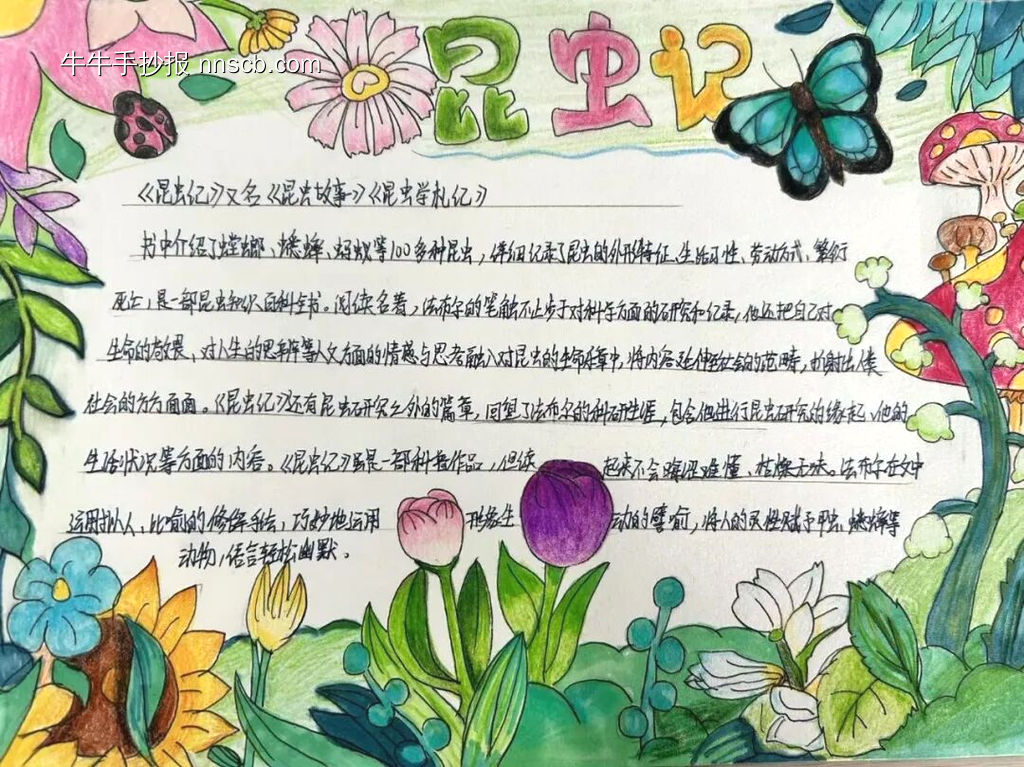 牛牛手抄报 nnscb.com
昆虫记
《昆虫记》又名《昆虫故事》《昆虫学札记》
书中介绍了螳螂、蟋蟀、蚂蚁等100多种昆虫，详细记录了昆虫的外形特征、生活习性、劳动方式、繁衍
死亡，是一部昆虫知识百科全书。阅读名著，法布尔的笔触不止步于对科学方面的研究和纪录，他还把自己对
生命的敬畏、对人生的思辨等人文方面的情感与思考融入对昆虫的生命篇章中，将内容延伸至社会的范畴，折射出人类
社会的方方面面。《昆虫记》还有昆虫研究之外的篇章，回望了法布尔的科研生涯，包含他进行昆虫研究的缘起、他的
生活状况等方面的内容。《昆虫记》虽是一部科普作品，但读 起来不会晦涩难懂、枯燥无味。法布尔在文中
运用拟人、比喻的修辞手法，巧妙地运用 形象生 动的譬喻，将人的灵性赋予甲虫、蟋蟀等
动物，语言轻松幽默。